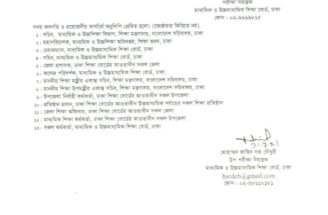 পরীক্ষা নিয়ন্ত্রক
মাধ্যমিক ও উচ্চমাধ্যমিক শিক্ষা বোর্ড, ঢাকা
সদয় অবগতি ও প্রয়োজনীয় কার্যার্থে অনুলিপি প্রেরিত হলো। (জ্যেষ্ঠতার ভিত্তিতে নয়)
১। সচিব, মাধ্যমিক ও উচ্চশিক্ষা বিভাগ, শিক্ষা মন্ত্রণালয়, বাংলাদেশ সচিবালয়, ঢাকা
২। মহাপরিচালক, মাধ্যমিক ও উচ্চশিক্ষা অধিদপ্তর, শিক্ষা ভবন, ঢাকা
৩। চেয়ারম্যান, মাধ্যমিক ও উচ্চমাধ্যমিক শিক্ষা বোর্ড, ঢাকা
৪। সচিব, মাধ্যমিক ও উচ্চমাধ্যমিক শিক্ষা বোর্ড, ঢাকা
৫। জেলা প্রশাসক, ঢাকা শিক্ষা বোর্ডের আওতাধীন সকল জেলা
৬। কলেজ পরিদর্শক, মাধ্যমিক ও উচ্চমাধ্যমিক শিক্ষা বোর্ড, ঢাকা
৭। মাননীয় শিক্ষা মন্ত্রীর একান্ত সচিব, শিক্ষা মন্ত্রণালয়, বাংলাদেশ সচিবালয়, ঢাকা
৮। মাননীয় শিক্ষা উপমন্ত্রীর একান্ত সচিব, শিক্ষা মন্ত্রণালয়, বাংলাদেশ সচিবালয়, ঢাকা
৯। উপজেলা নির্বাহী কর্মকর্তা, ঢাকা শিক্ষা বোর্ডের আওতাধীন সকল উপজেলা
১০। প্রতিষ্ঠান প্রধান, ঢাকা শিক্ষা বোর্ডের আওতাধীন উচ্চমাধ্যমিক পর্যায়ের সকল শিক্ষা প্রতিষ্ঠান
১১। জেলা শিক্ষা অফিসার, ঢাকা শিক্ষা বোর্ডের আওতাধীন সকল জেলা
১২। মাধ্যমিক শিক্ষা কর্মকর্তা, ঢাকা শিক্ষা বোর্ডের আওতাধীন সকল উপজেলা
১৩। সকল কর্মকর্তা, মাধ্যমিক ও উচ্চমাধ্যমিক শিক্ষা বোর্ড, ঢাকা
উপ পরীক্ষা নিয়ন্ত্রক
মাধ্যমিক ও উচ্চমাধ্যমিক শিক্ষা বোর্ড, ঢাকা
hscdeb@gmail.com